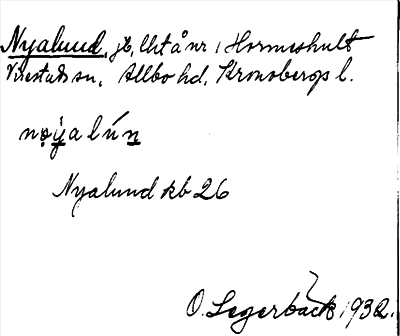 Nyalund, jb, lht å nr 1 Hormeshult
Virestads sn, Allbo hd, Kronobergs l.
nøýa lún
Nyalund kb 26
O. Segerbäck 1932.